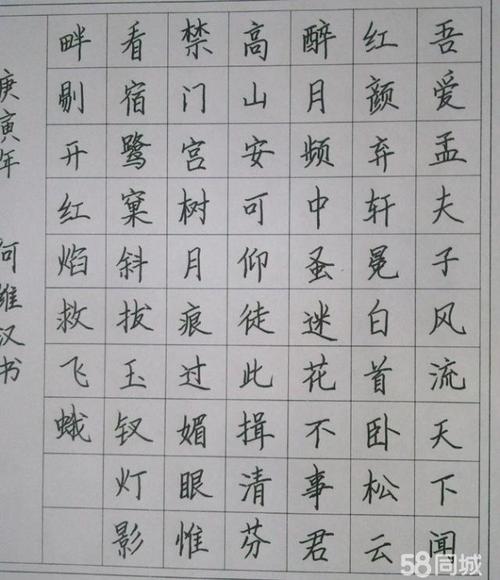 吾爱孟夫子风流天下闻
红颜弃轩冕白首卧松云
醉月频中蚤迷花不事君
高山安可仰徒此揖清芬
禁门宫树月痕过媚眼惟
看宿鹭窠斜拔玉钗灯影
畔剔开红焰救飞蛾
庚寅年 维汉书
58同城